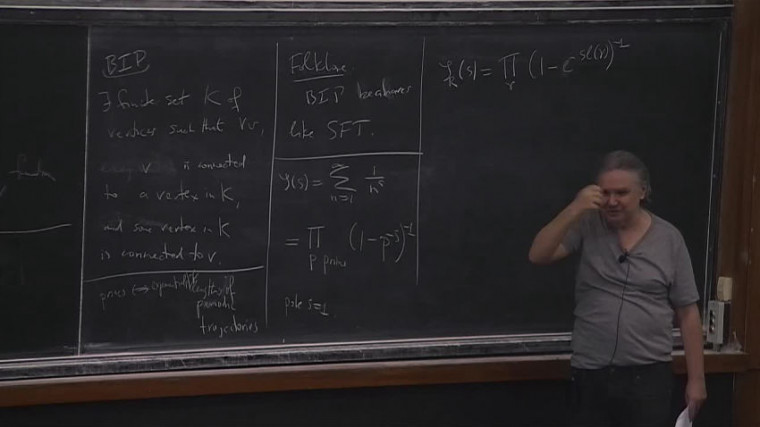 function
BIP
∃ finite set K of
vertices such that ∀v,
every v is connected
to a vertex in K,
and some vertex in K
is connected to v.
primes ↔ exponential lengths of
periodic
trajectories
Folklore
BIP behaves
like SFT.
ζ(s) = ∑_{n=1}^∞ 1/n^s
= ∏_{p prime} (1-p^{-s})^{-1}
pole s=1
(s) = ∏_γ (1-e^{-sℓ(γ)})^{-1}